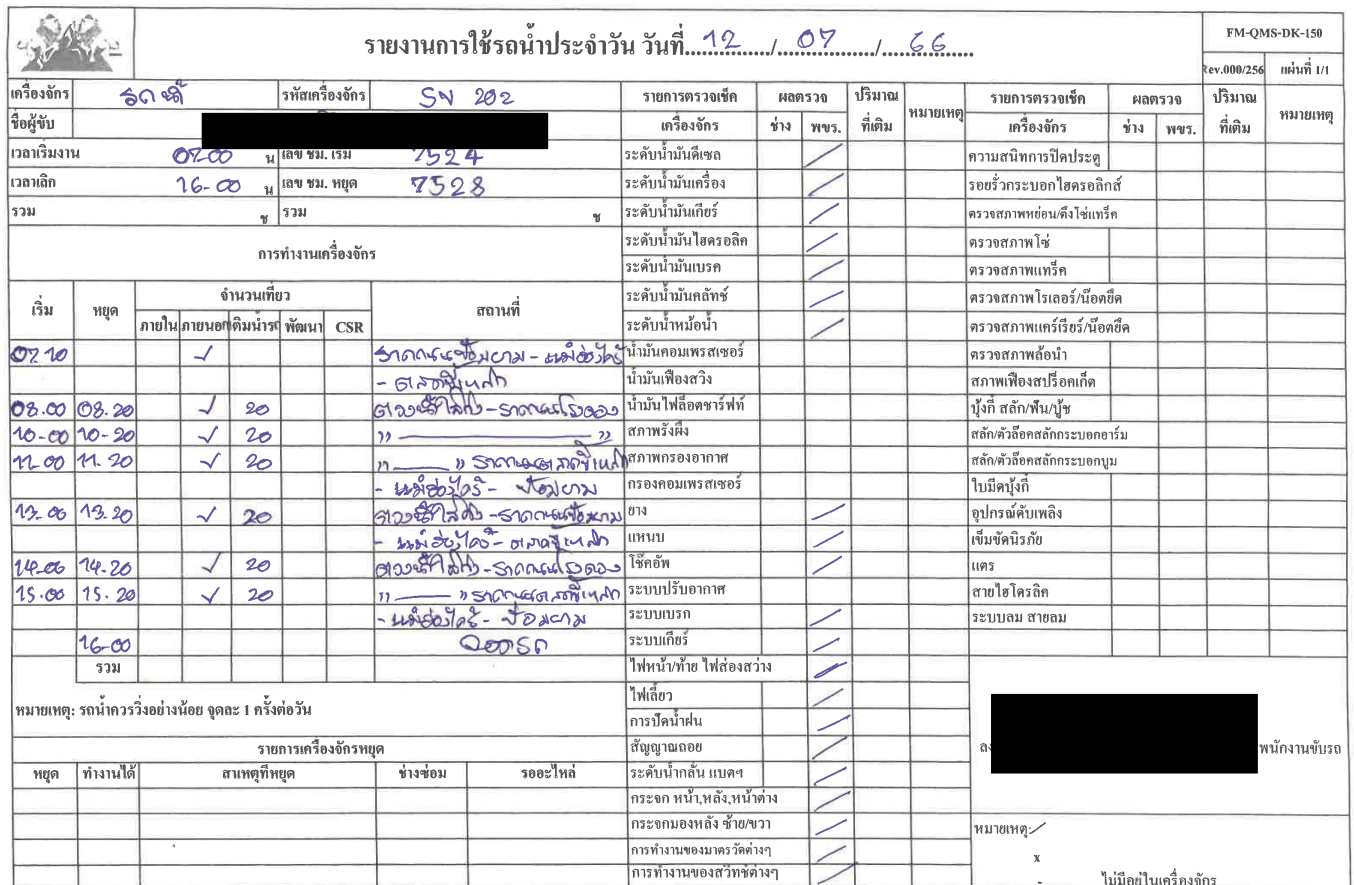 รายงานการใช้รถน้ำประจำวัน วันที่ 12 / 07 / 66
FM-QMS-DK-150
Rev.000/256 แผ่นที่ 1/1
เครื่องจักร รถน้ำ รหัสเครื่องจักร SN 202
ชื่อผู้ขับ
เวลาเริ่มงาน 07-00 น เลข ชม. เริ่ม 7524
เวลาเลิก 16-00 น เลข ชม. หยุด 7528
รวม ช รวม ช
การทำงานเครื่องจักร
เริ่ม หยุด จำนวนเที่ยว สถานที่
ภายใน ภายนอก เติมน้ำรถ พัฒนา CSR
07.10 ✓ ราดถนนป้อมยาม - แม่ฮ่องไคร้
- ตลาดขี้เหล็ก
08.00 08.20 ✓ 20 ตวงน้ำใส่ถัง - ราดถนน
10-00 10-20 ✓ 20 " "
11.00 11.20 ✓ 20 " " ราดถนนตลาดขี้เหล็ก
- แม่ฮ่องไคร้ - ป้อมยาม
13-00 13.20 ✓ 20 ตวงน้ำใส่ถัง - ราดถนนป้อมยาม
- แม่ฮ่องไคร้ - ตลาดขี้เหล็ก
14-00 14.20 ✓ 20 ตวงน้ำใส่ถัง - ราดถนน
15.00 15.20 ✓ 20 " " ราดถนนตลาดขี้เหล็ก
- แม่ฮ่องไคร้ - ป้อมยาม
16-00 จอดรถ
รวม
หมายเหตุ: รถน้ำควรวิ่งอย่างน้อย จุดละ 1 ครั้งต่อวัน
รายการเครื่องจักรหยุด
หยุด ทำงานได้ สาเหตุที่หยุด ช่างซ่อม รออะไหล่
รายการตรวจเช็ค ผลตรวจ ปริมาณ หมายเหตุ
เครื่องจักร ช่าง พขร. ที่เติม
ระดับน้ำมันดีเซล /
ระดับน้ำมันเครื่อง /
ระดับน้ำมันเกียร์ /
ระดับน้ำมันไฮดรอลิค /
ระดับน้ำมันเบรค /
ระดับน้ำมันคลัทช์ /
ระดับน้ำหม้อน้ำ /
น้ำมันคอมเพรสเซอร์
น้ำมันเฟืองสวิง
น้ำมันไฟล็อตชาร์ฟท์
สภาพรังผึ้ง
สภาพกรองอากาศ
กรองคอมเพรสเซอร์
ยาง /
แหนบ /
โช๊คอัพ /
ระบบปรับอากาศ
ระบบเบรก /
ระบบเกียร์ /
ไฟหน้า/ท้าย ไฟส่องสว่าง /
ไฟเลี้ยว /
การปัดน้ำฝน /
สัญญาณถอย /
ระดับน้ำกลั่น แบตฯ /
กระจก หน้า,หลัง,หน้าต่าง /
กระจกมองหลัง ซ้าย/ขวา /
การทำงานของมาตรวัดต่างๆ /
การทำงานของสวิทช์ต่างๆ /
รายการตรวจเช็ค ผลตรวจ ปริมาณ หมายเหตุ
เครื่องจักร ช่าง พขร. ที่เติม
ความสนิทการปิดประตู
รอยรั่วกระบอกไฮดรอลิกส์
ตรวจสภาพหย่อน/ตึงโซ่แทร็ค
ตรวจสภาพโซ่
ตรวจสภาพแทร็ค
ตรวจสภาพโรเลอร์/น๊อตยึด
ตรวจสภาพแคร์เรียร์/น๊อตยึด
ตรวจสภาพล้อนำ
สภาพเฟืองสปร็อคเก็ต
บุ้งกี๋ สลัก/ฟัน/บู้ช
สลัก/ตัวล๊อคสลักกระบอกอาร์ม
สลัก/ตัวล๊อคสลักกระบอกบูม
ใบมีดบุ้งกี๋
อุปกรณ์ดับเพลิง
เข็มขัดนิรภัย
แตร
สายไฮโดรลิค
ระบบลม สายลม
พนักงานขับรถ
หมายเหตุ: /
x
ไม่มีอยู่ในเครื่องจักร